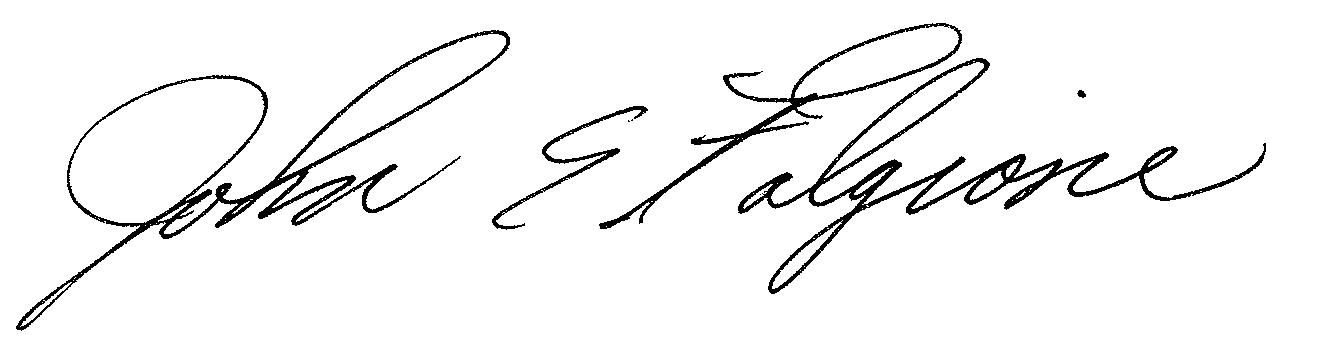 John E Falgione